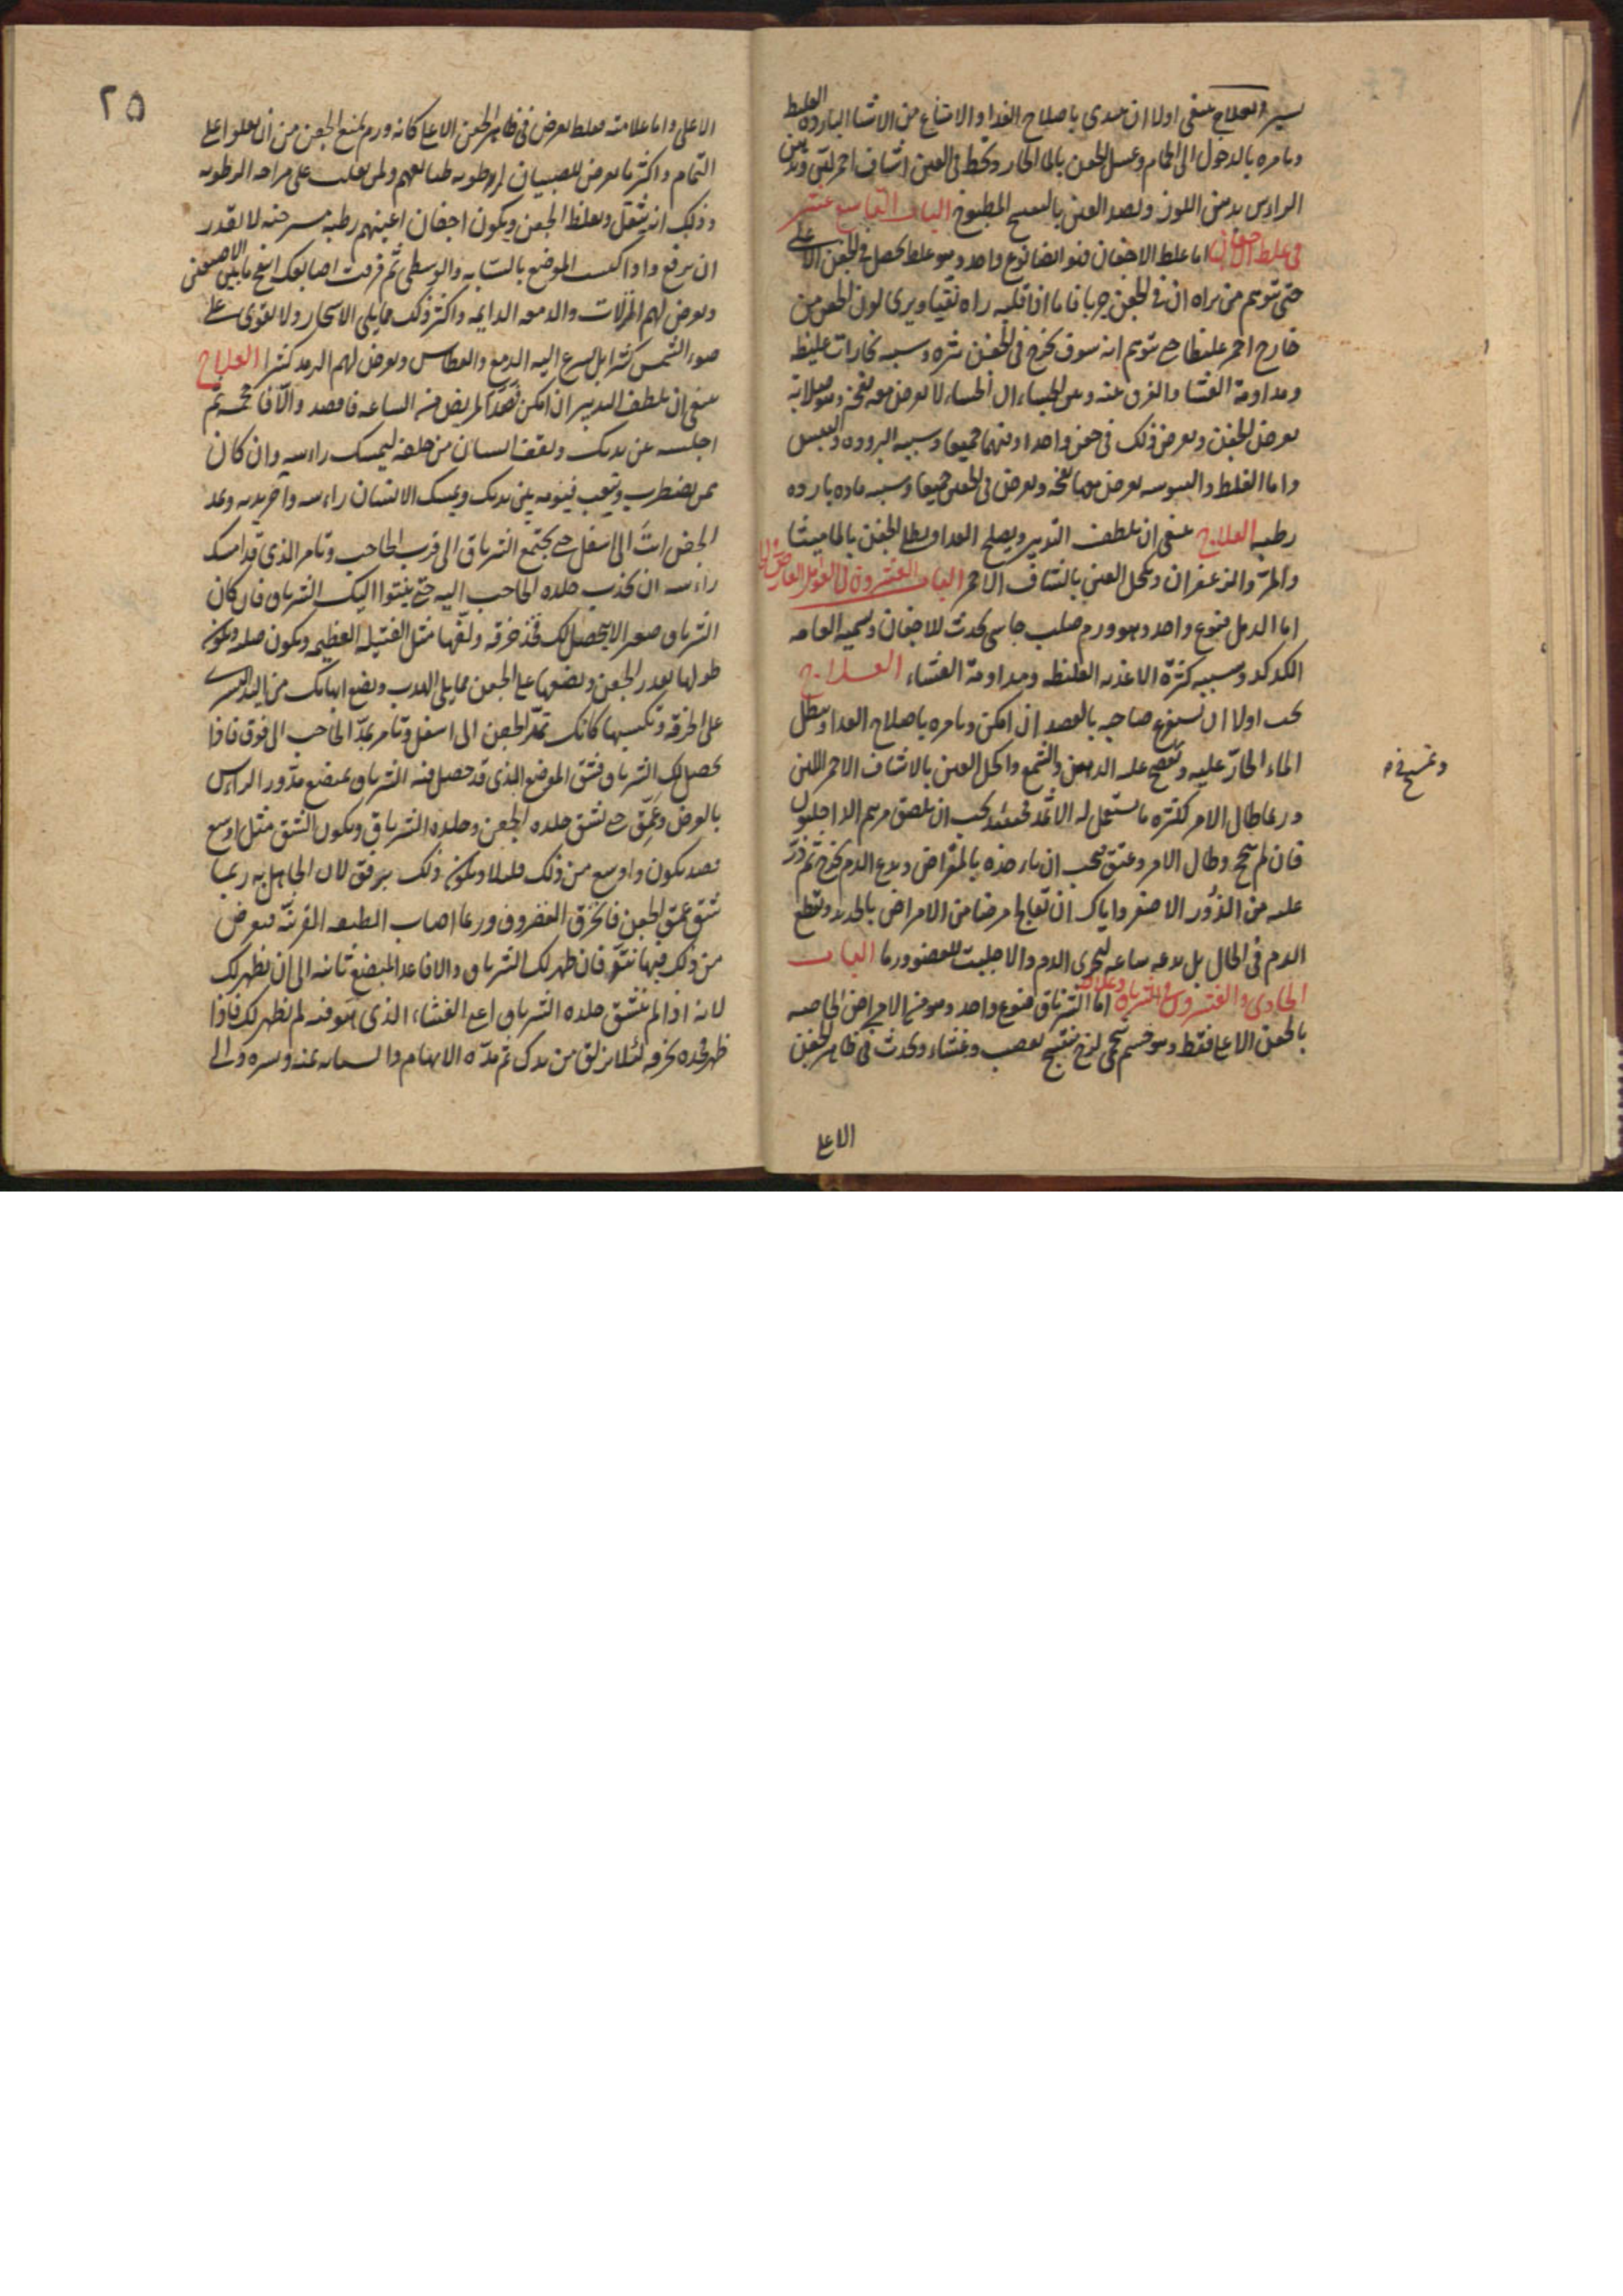 يسير والعلاج ينبغي اولا ان يبتدي باصلاح الغذا والامتناع من الاشيا الباردة الغليظة
ويامره بالدخول الى الحمام وغسل الجفن بالما الحار ويخط في العين اشياف احمر لين ويدهن
الراس بدهن اللوز ويضمد العين بالبنفسج المطبوخ الباب التاسع عشر
في غلظ الاجفان اما غلظ الاجفان فهو ايضا نوع واحد وهو غلظ يحصل في الجفن الاعلى
حتى توهم من يراه ان في الجفن جربا فاما اذا قلبه راه نقيا ويرى لون الجفن من
خارج احمر غليظا حتى توهم انه سوف يخرج في الجفن بثره وسببه بخارات غليظه
ومداومة العشا والفرق بينه وبين الجساء ان الجساء لا يعرض معه نفخة وهو صلابة
يعرض للجفن ويعرض ذلك في جفن واحد او فيهما جميعا وسببه البرودة واليبس
واما الغلظ واليبوسه يعرض معها نفخه ويعرض في الجفنين جميعا وسببه ماده بارده
رطبه العلاج ينبغي ان يلطف التدبير ويصلح الغدا ويطلى الجفن بالماميثا
والمر والزعفران ويكحل العين بالشياف الاحمر الباب العشرون في الدمل العارض
اما الدمل فنوع واحد وهو ورم صلب جاسي يحدث للاجفان وتسميه العامه
الكدكد وسببه كثرة الاغذيه الغليظه ومداومة العشاء العلاج
يجب اولا ان يستفرغ صاحبه بالفصد ان امكن ويامره باصلاح الغدا وينطل
الماء الحار عليه ويضع عليه الدهن والشمع واكحل العين بالاشياف الاحمر اللين
وربما طال الامر لكثرة ما يستعمل له الاثمد فحينئذ يجب ان يلصق مرهم الداخليون
فان لم ينجح وطال الامر وعتق فيجب ان ياخذه بالمقراض ويدع الدم يخرج ثم ذر
عليه من الذرور الاصفر واياك ان تعالج مرضا من الامراض بالحديد وتقطع
الدم في الحال بل يدعه ساعه ليجرى الدم والا جلبت للعضو ورما الباب
الحادى والعشرون في الشرناق وعلاجه اما الشرناق فنوع واحد وهو من الامراض الخاصه
بالجفن الاعلى فقط وهو جسم شحمي لزج منتسج بعصب وغشاء ويحدث في ظاهر الجفن
الاعلى
الاعلى واما علامته فغلظ يعرض في ظاهر الجفن الاعلى كانه ورم يمنع الجفن من ان يعلوا على
التمام واكثر ما يعرض للصبيان لرطوبه طبائعهم ولمن يغلب على مزاجه الرطوبه
وذلك انه يثقل ويغلظ الجفن ويكون اجفان اعينهم رطبه مسترخيه لا يقدر
ان يرفع واذا كبست الموضع بالسبابه والوسطى ثم فرقت اصابعك انتفخ ما بين الاصبعين
ويعرض لهم النزلات والدمعه الدايمه واكثر ذلك مما يلي الاسحار ولا يقوى على
ضوء الشمس كثيرا بل يسرع اليه الدمع والعطاس ويعرض لهم الرمد كثيرا العلاج
ينبغي ان يلطف التدبير ان امكن فصد المريض فمن الساعه فافصد والا فاحجمه ثم
اجلسه بين يديك ويقف انسان من خلفه ليمسك راسه وان كان
ممن يضطرب ويتعب فينومه بين يديك ويمسك الانسان راسه واخر يديه ويمد
الجفن انت الى اسفل حتى يجتمع الشرناق الى قرب الحاجب وتامر الذى قد امسك
راسه ان يجذب جلده الحاجب اليه حتى ينتوا اليك الشرناق فان كان
الشرناق صغيرا لا يحصل لك فخذ خرقه ولفها مثل الفتيله العظيمه ويكون
طولها بقدر الجفن وتضعها على الجفن مما يلي الهدب وتضع ابهامك من اليد اليسرى
على الخرقه وتكبسها كانك تمد الجفن الى اسفل وتامر بمد الحاجب الى فوق فاذا
تحصل لك الشرناق فشق الموضع الذى قد حصل فيه الشرناق بمبضع مدور الراس
بالعرض وعمق حتى تشق جلده الجفن وجلده الشرناق ويكون الشق مثل اوسع
فصد يكون واوسع من ذلك قليلا ويكون ذلك برفق لان الجاهل به ربما
شق عمق الجفن فانخرق الغضروف وربما اصاب الطبقه القرنيه فيعرض
من ذلك فيها نتو فان ظهر لك الشرناق والا فاعد المبضع ثانيه الى ان يظهر لك
لانه اذا لم ينشق جلده الشرناق اعنى الغشاء الذى هو فيه لم يظهر لك فاذا
ظهر فخذه بخرقه لئلا يزلق من يدك ثم تمده الابهام والسبابه يمنه ويسره والى
٢٥